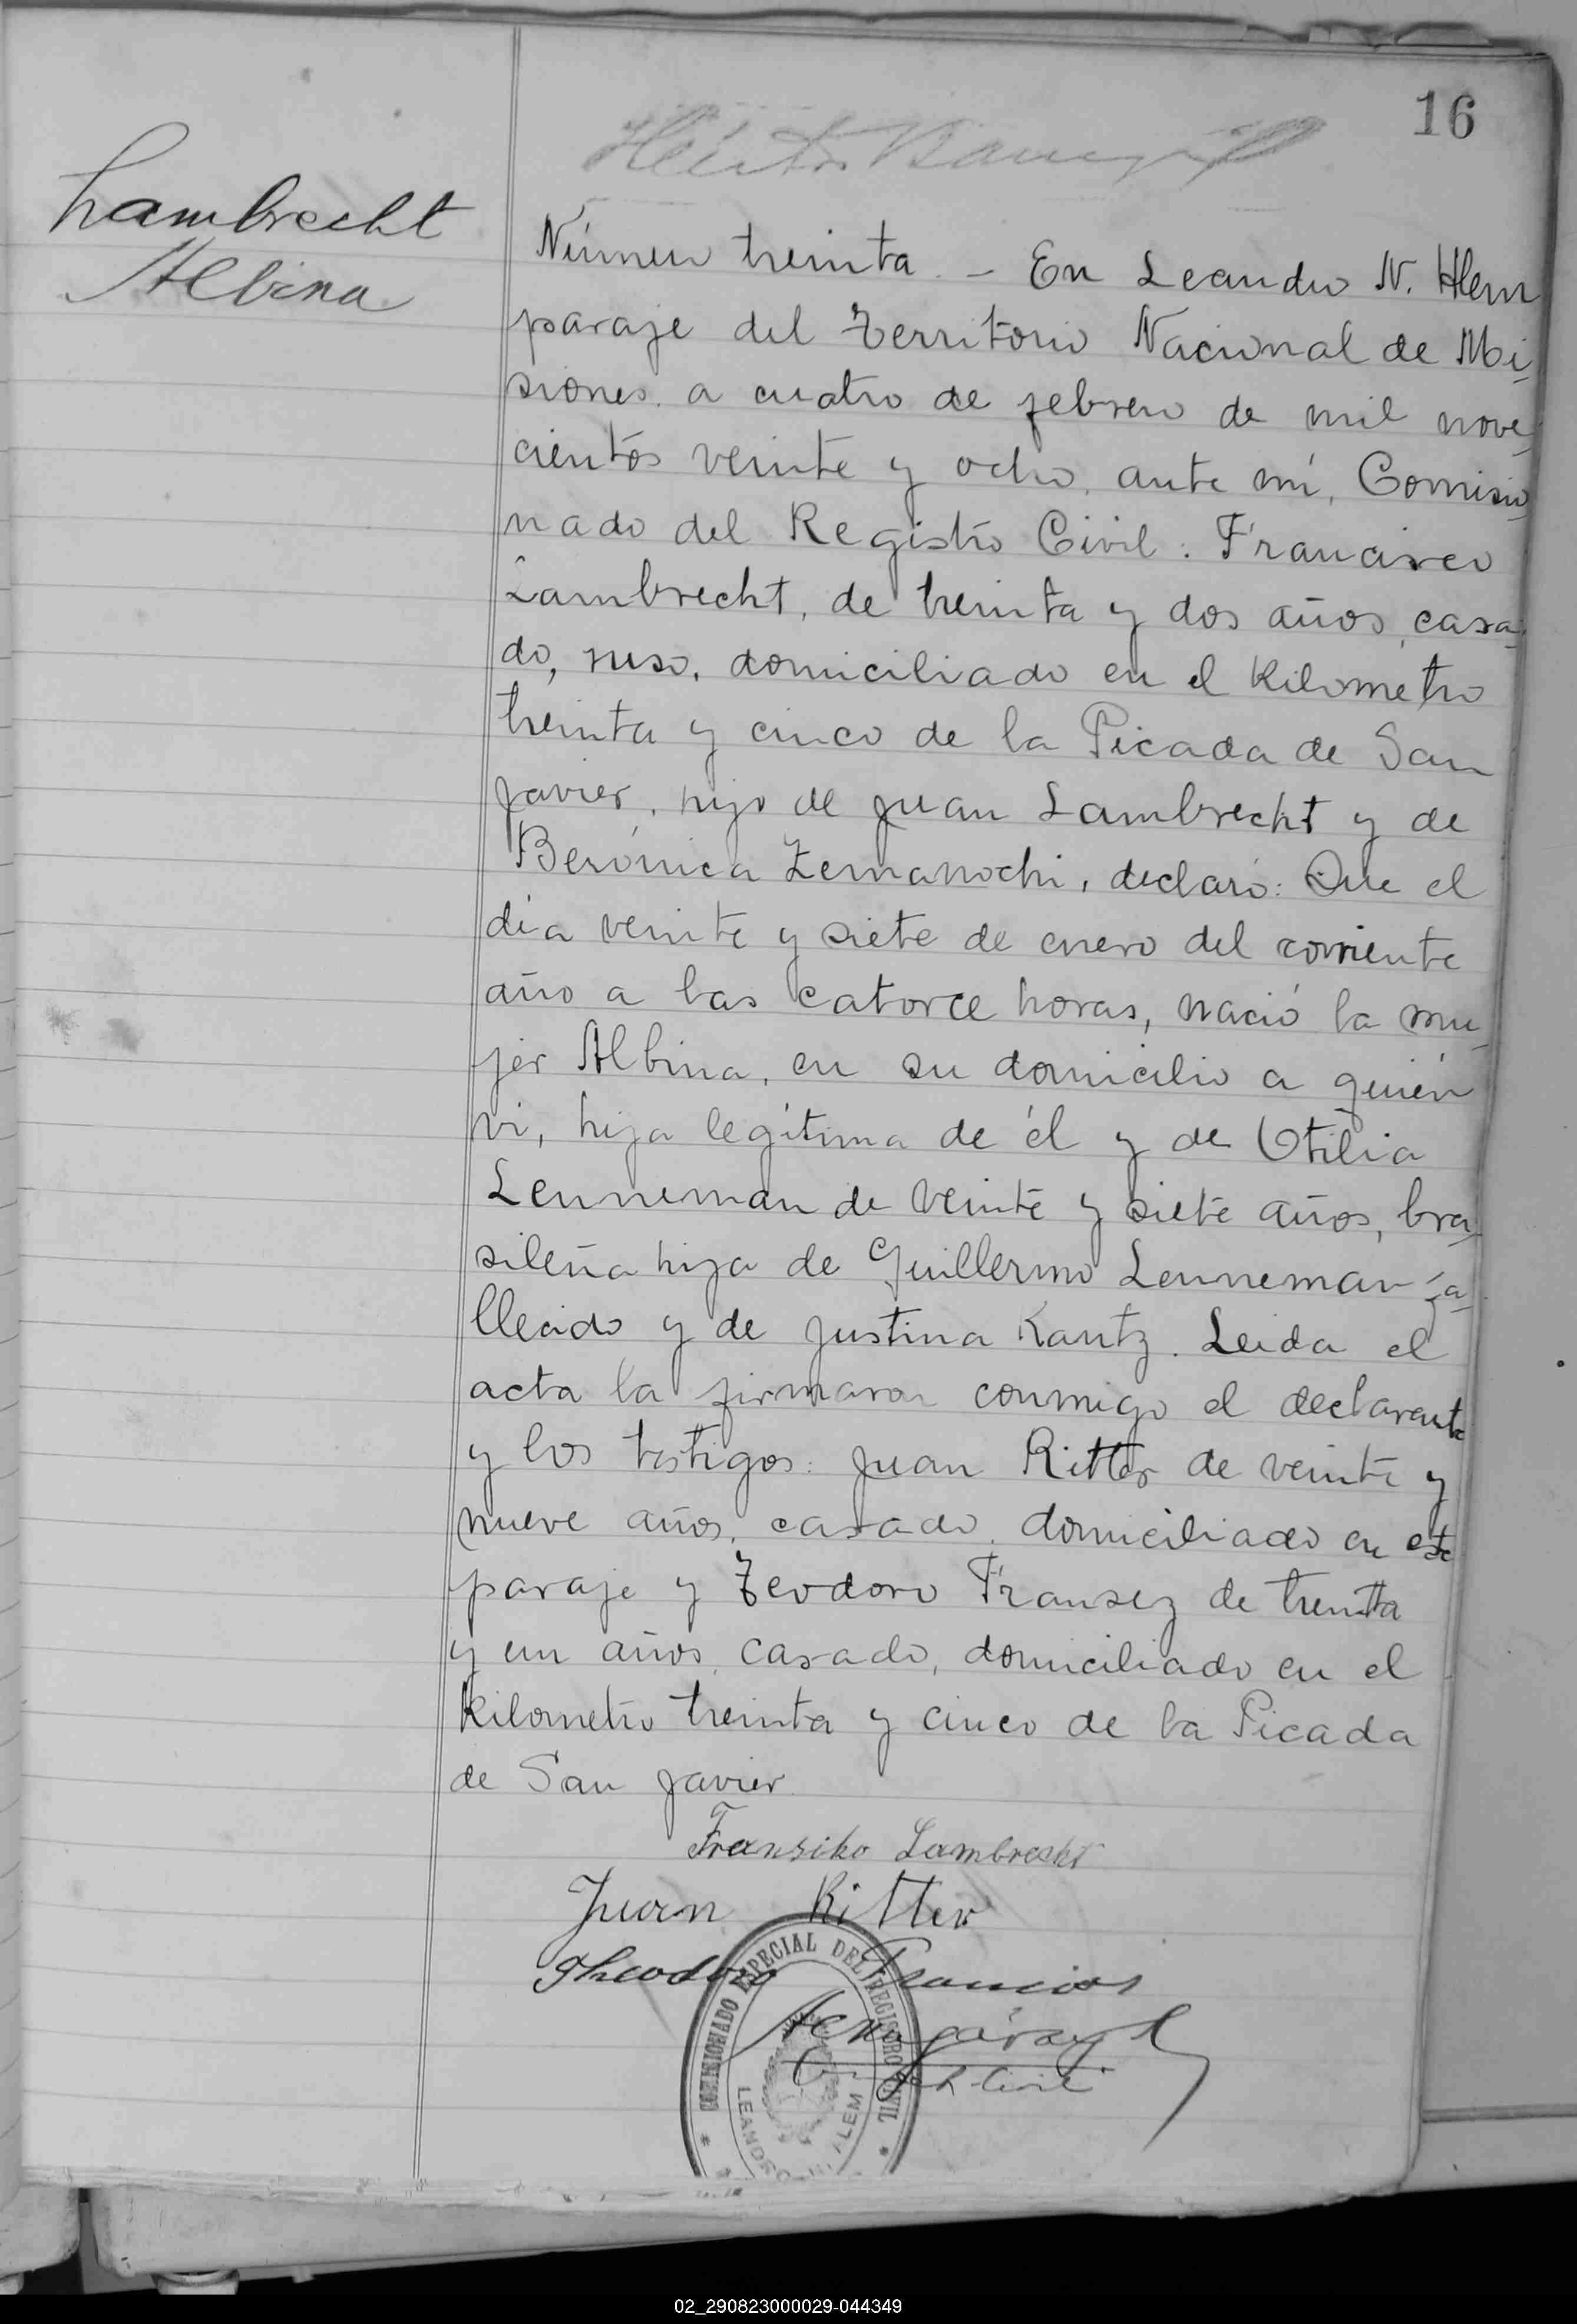 16
Lambrecht
Albina
Número treinta. - En Leandro N. Alem
paraje del Territorio Nacional de Mi-
siones, a cuatro de febrero de mil nove-
cientos veinte y ocho, ante mí, Comisio-
nado del Registro Civil: Francisco
Lambrecht, de treinta y dos años, casa-
do, ruso, domiciliado en el Kilometro
treinta y cinco de la Picada de San
Javier, hijo de Juan Lambrecht y de
Berónica Zemanochi, declaró: Que el
día veinte y siete de enero del corriente
año a las catorce horas, nació la mu-
jer Albina, en su domicilio a quién
vi, hija legítima de él y de Otilia
Lenneman de veinte y siete años, bra-
sileña hija de Guillermo Lenneman fa-
llecido y de Justina Kantz. Leida el
acta la firmaron conmigo el declarante
y los testigos: Juan Ritter de veinte y
nueve años, casado, domiciliado en este
paraje y Teodoro Fransez de treinta
y un años, casado, domiciliado en el
Kilometro treinta y cinco de la Picada
de San Javier.
Fransiko Lambrecht
Juan Ritter
Theodoro Francios
COMISIONADO ESPECIAL DEL REGISTRO CIVIL
LEANDRO N. ALEM
02_290823000029-044349